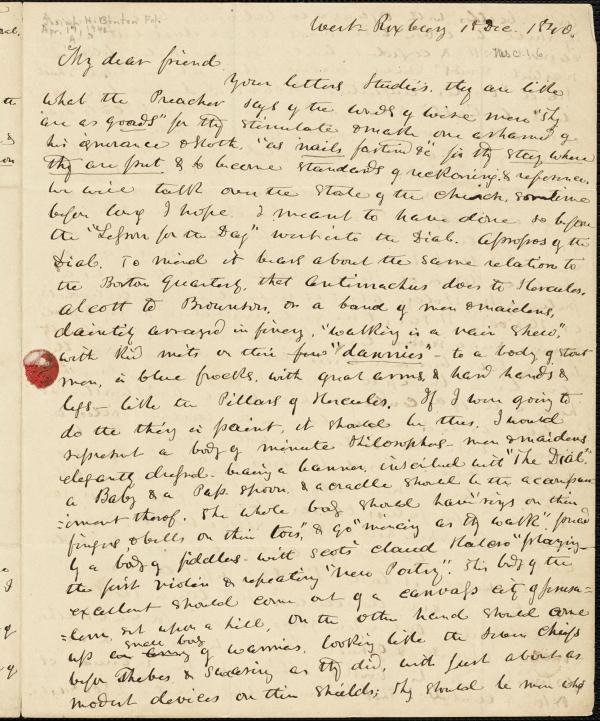 West Roxbury 18 Dec. 1840.
My dear friend
Your letters studies, they are like
what the Preacher says of the words of wise men "They
are as goads" for they stimulate & make one ashamed of
his ignorance & sloth. "as nails fastened &c" for they stay where
they are put & so become standards of reckoning & reference.
We will talk over the State of the church, sometime
before long I hope. I meant to have done so before
the "Lesson for the Day" went into the Dial. Apropos of the
Dial. To my mind it bears about the same relation to
the Boston Quarterly, that Antimachus does to Hercules,
Alcott to Brownson, or a band of men & maidens,
daintily arrayed in finery, "walking in a vain shew",
with kid mits on their "dannies" - to a body of stout
men, in blue frocks, with great arms, & hard hands &
legs - like the Pillars of Hercules. If I were going to
do the thing in paint, it should be thus. I would
represent a body of minute Philosophers men & maidens
elegantly dressed bearing a banner, inscribed with "The Dial".
a Baby & a Pap spoon, & a cradle should be the accompani
=ment thereof. The whole body should have "rings on their
fingers, & bells on their toes", & go "mincing as they walk"
by a body of fiddlers with Scott's Claud Halcro "playing
the first violin & repeating "new Poetry". This body of the
excellent should come out of a canvass city of Jerusa=
=lem, set upon a hill. On the other hand should come
up a small body of warriors, looking like the Seven Chiefs
before Thebes & swearing as they did, with just about as
modest devices on their shields; they should be men who